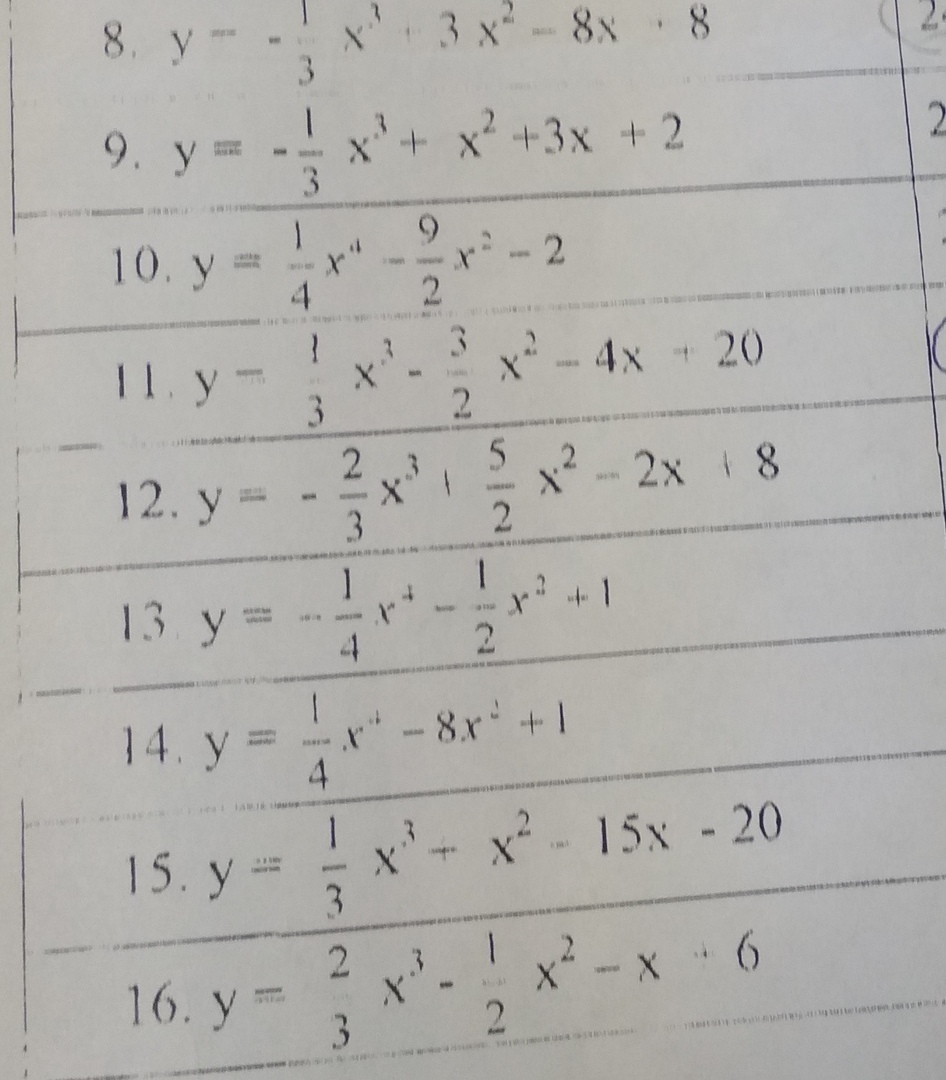 8. y = - 1/3 x³ + 3x² - 8x + 8
9. y = - 1/3 x³ + x² +3x + 2
10. y = 1/4 x⁴ - 9/2 x² - 2
11. y = 1/3 x³ - 3/2 x² - 4x + 20
12. y = - 2/3 x³ + 5/2 x² - 2x + 8
13. y = - 1/4 x⁴ - 1/2 x² + 1
14. y = 1/4 x⁴ - 8x² + 1
15. y = 1/3 x³ + x² - 15x - 20
16. y = 2/3 x³ - 1/2 x² - x + 6